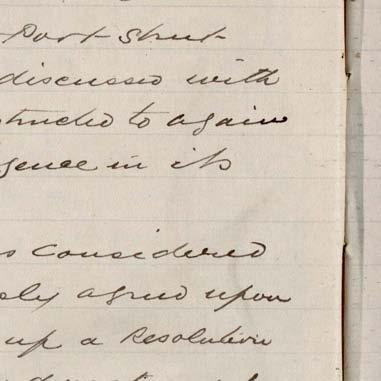 Port Street
discussed with
structed to again
gence in its
s considered
sly agreed upon
up a Resolution